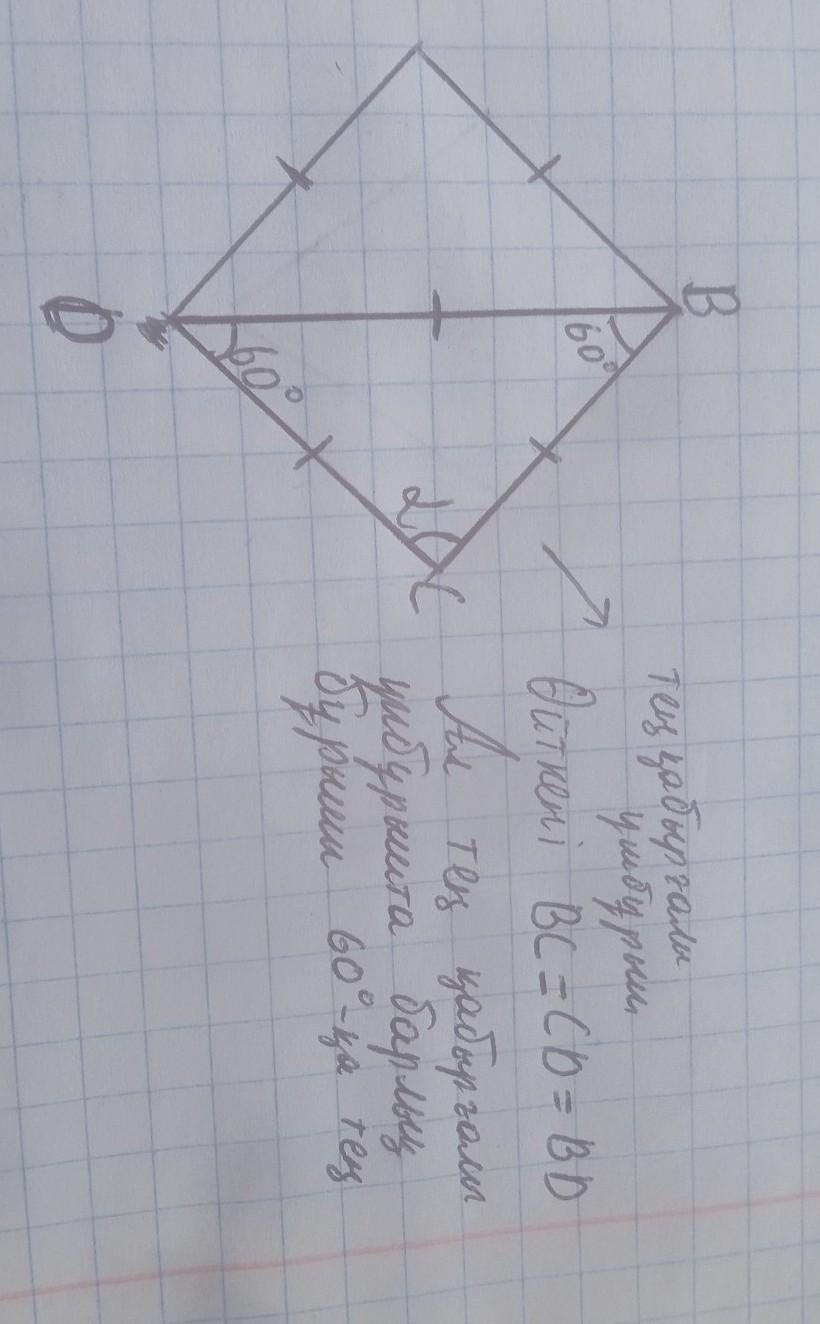 B
60°
60°
D
α
C
тең қабырғалы
үшбұрыш
Өйткені BC = CD = BD
Ал тең қабырғалы
үшбұрышта барлық
бұрышы 60°-қа тең